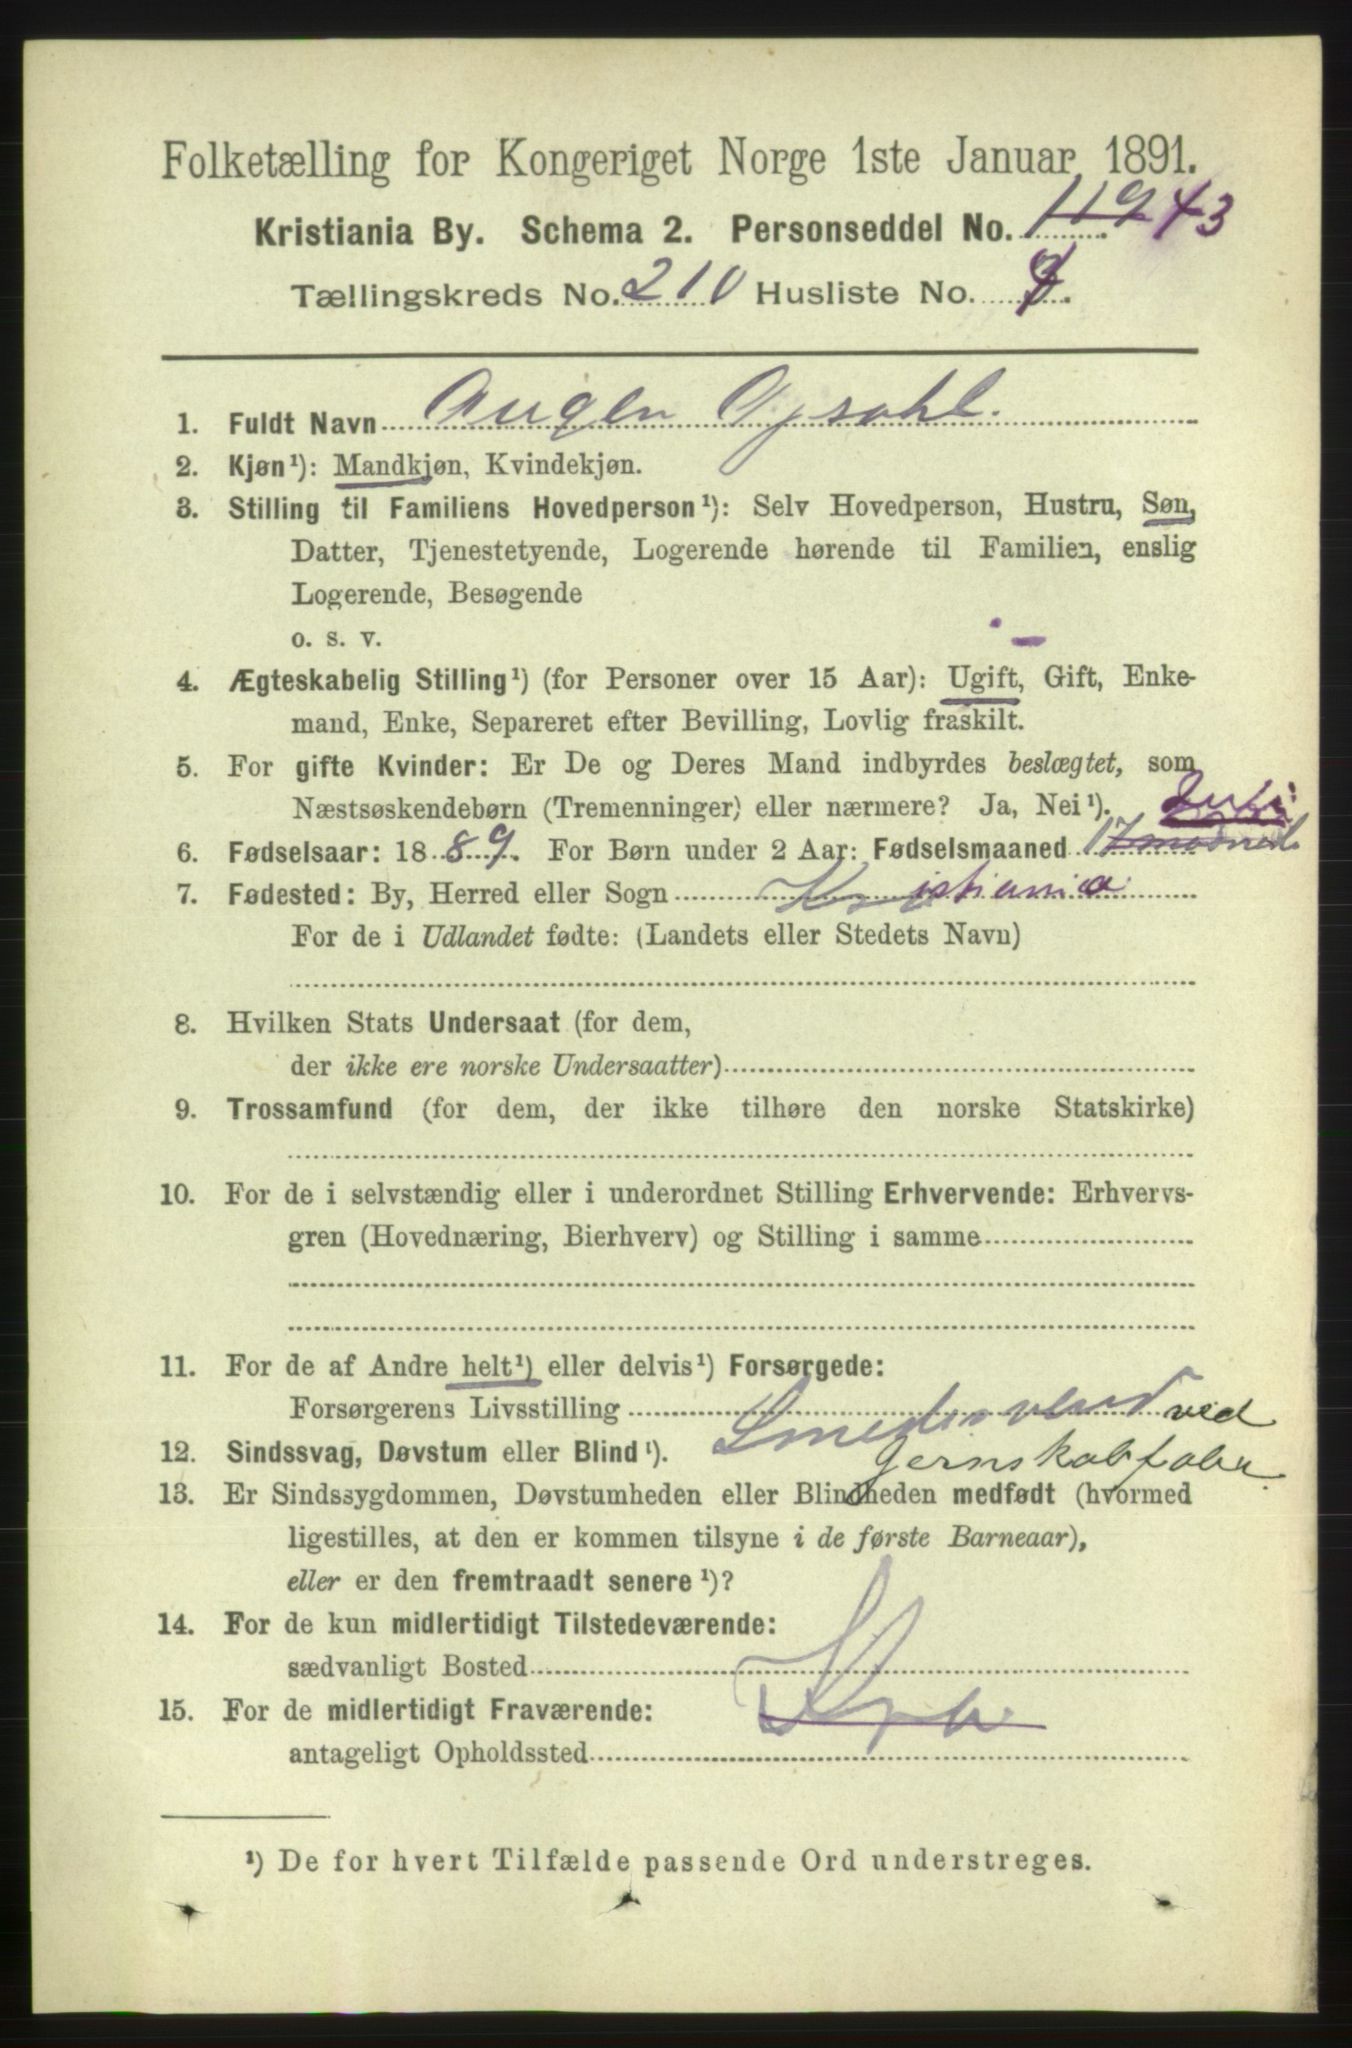 Folketælling for Kongeriget Norge 1ste Januar 1891.
Kristiania By. Schema 2. Personseddel No. 119 43
Tællingskreds No. 210 Husliste No.
1. Fuldt Navn
2. Kjøn¹): Mandkjøn, Kvindekjøn.
3. Stilling til Familiens Hovedperson¹): Selv Hovedperson, Hustru, Søn,
Datter, Tjenestetyende, Logerende hørende til Familien, enslig
Logerende, Besøgende
o. s. v.
4. Ægteskabelig Stilling¹) (for Personer over 15 Aar): Ugift, Gift, Enke-
mand, Enke, Separeret efter Bevilling, Lovlig fraskilt.
5. For gifte Kvinder: Er De og Deres Mand indbyrdes beslægtet, som
Næstsøskendebørn (Tremenninger) eller nærmere? Ja, Nei¹).
6. Fødselsaar: 1889. For Børn under 2 Aar: Fødselsmaaned 17 maaned
7. Fødested: By, Herred eller Sogn Kristiania
For de i Udlandet fødte: (Landets eller Stedets Navn)
8. Hvilken Stats Undersaat (for dem,
der ikke ere norske Undersaatter)
9. Trossamfund (for dem, der ikke tilhøre den norske Statskirke)
10. For de i selvstændig eller i underordnet Stilling Erhvervende: Erhvervs-
gren (Hovednæring, Bierhverv) og Stilling i samme
11. For de af Andre helt¹) eller delvis¹) Forsørgede:
Forsørgerens Livsstilling Smedesvend ved
12. Sindssvag, Døvstum eller Blind¹). Jernskabfabr.
13. Er Sindssygdommen, Døvstumheden eller Blindheden medfødt (hvormed
ligestilles, at den er kommen tilsyne i de første Barneaar),
eller er den fremtraadt senere¹)?
14. For de kun midlertidigt Tilstedeværende:
sædvanligt Bosted
15. For de midlertidigt Fraværende: Kra
antageligt Opholdssted
¹) De for hvert Tilfælde passende Ord understreges.